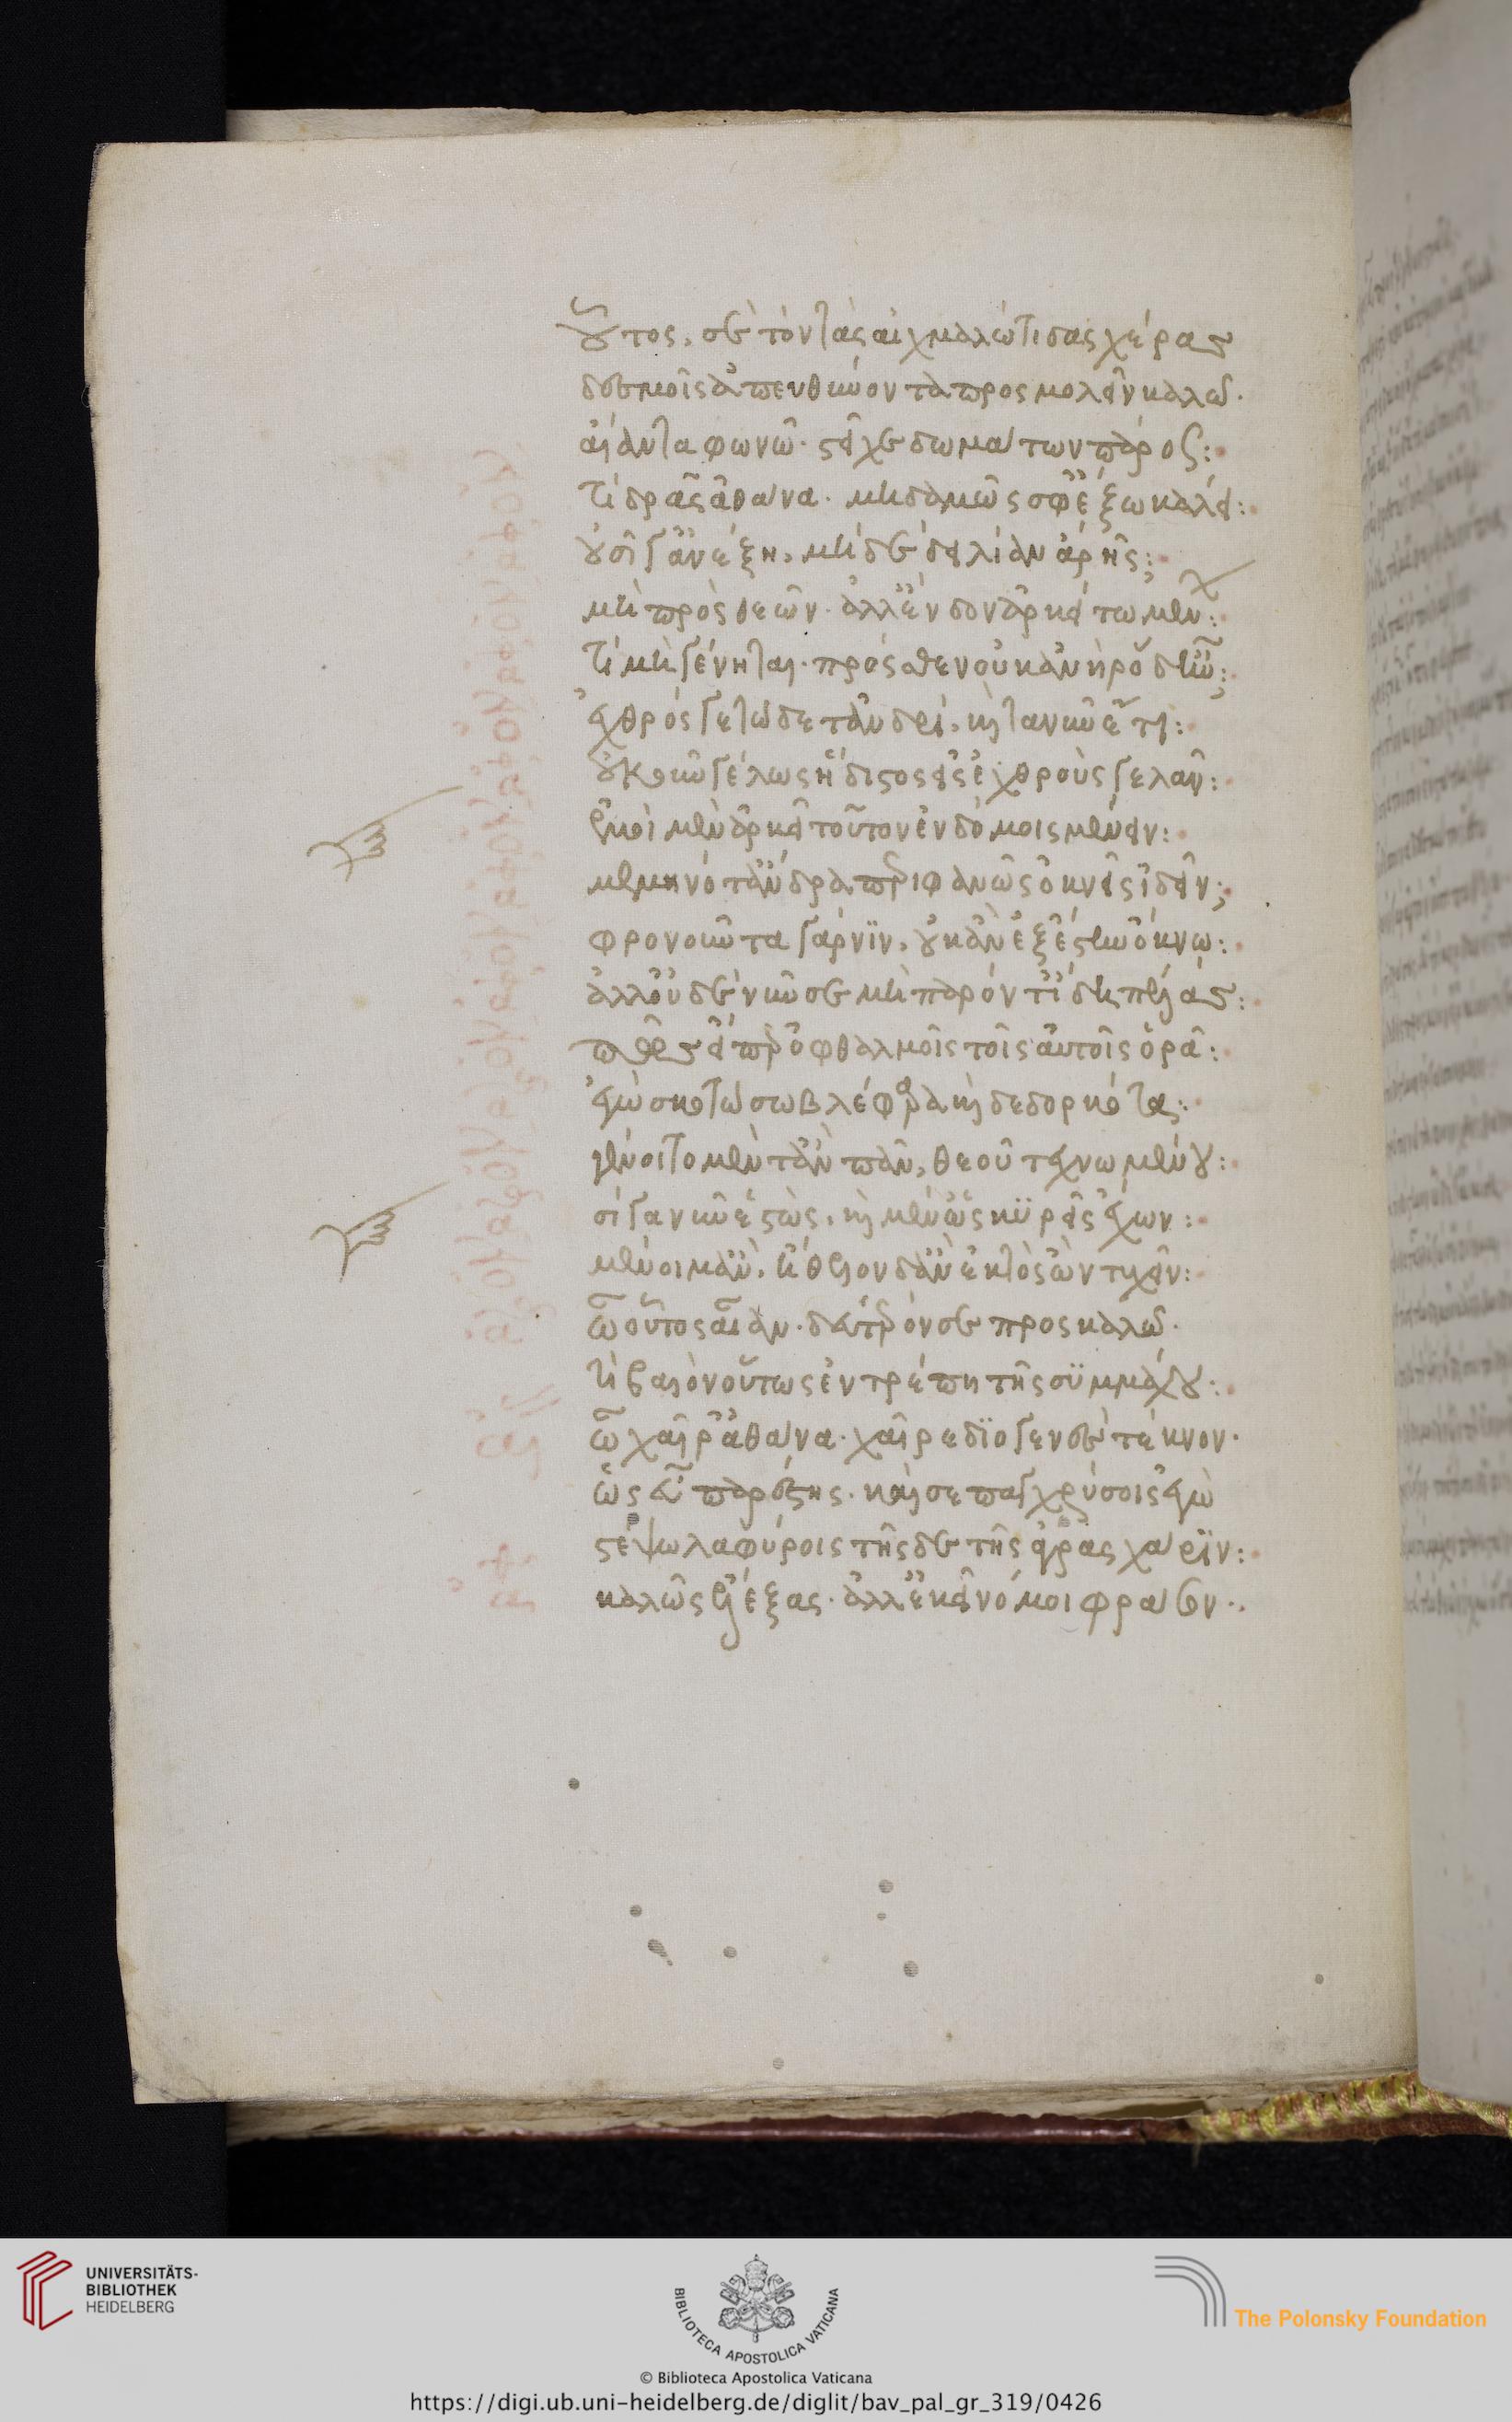 οὗτος, σὲ τὸν τὰς αἰχμαλωτίδας χέρας
δεσμοῖς ἀπευθύνοντα προσμολεῖν καλῶ.
αἴαντα φωνῶ. στεῖχε δωμάτων πάρος:
τί δρᾷς ἀθάνα. μηδαμῶς σφ' ἔξω κάλει:
οὐ σῖγ' ἀνέξῃ, μὴ δὲ δειλίαν ἀρῇς;
μὴ πρὸς θεῶν. ἀλλ' ἔνδον ἀρκείτω μένων:
τί μὴ γένηται. πρόσθεν οὐκ ἀνὴρ ὅδ' ἦν;
ἐχθρός γε τῷδε τἀνδρί, καὶ τανῦν ἔτι:
οὔκουν γέλως ἥδιστος εἰς ἐχθροὺς γελᾶν:
ἐμοὶ μὲν ἀρκεῖ τοῦτον ἐν δόμοις μένειν:
μεμηνότ' ἄνδρα περιφανῶς ὀκνεῖς ἰδεῖν;
φρονοῦντα γάρ νιν, οὐκ ἂν ἐξέστην ὄκνῳ:
ἀλλ' οὐδὲ νῦν σε μὴ παρόντ' ἴδῃ πέλας:
πῶς εἴπερ ὀφθαλμοῖς τοῖς αὐτοῖς ὁρᾷ:
ἐγὼ σκοτώσω βλέφαρα καὶ δεδορκότα:
γένοιτο μέν τ' ἂν πᾶν, θεοῦ τεχνωμένου:
σίγα νῦν ἑστώς, καὶ μέν' ὡς κυρεῖς ἔχων:
μένοιμ' ἄν, ἤθελον δ' ἂν ἐκτὸς ὢν τυχεῖν:
ὦ οὗτος αἶαν. δεύτερόν σε προσκαλῶ.
τί βαιὸν οὕτως ἐντρέπῃ τῆς συμμάχου:
ὦ χαῖρ' ἀθάνα. χαῖρε διογενὲς τέκνον.
ὡς εὖ παρέστης. καί σε παγχρύσοις ἐγὼ
στέψω λαφύροις τῆσδε τῆς ἄγρας χάριν:
καλῶς ἔλεξας. ἀλλ' ἐκεῖνό μοι φράσον.
UNIVERSITÄTS-
BIBLIOTHEK
HEIDELBERG
BIBLIOTECA APOSTOLICA VATICANA
The Polonsky Foundation
© Biblioteca Apostolica Vaticana
https://digi.ub.uni-heidelberg.de/diglit/bav_pal_gr_319/0426